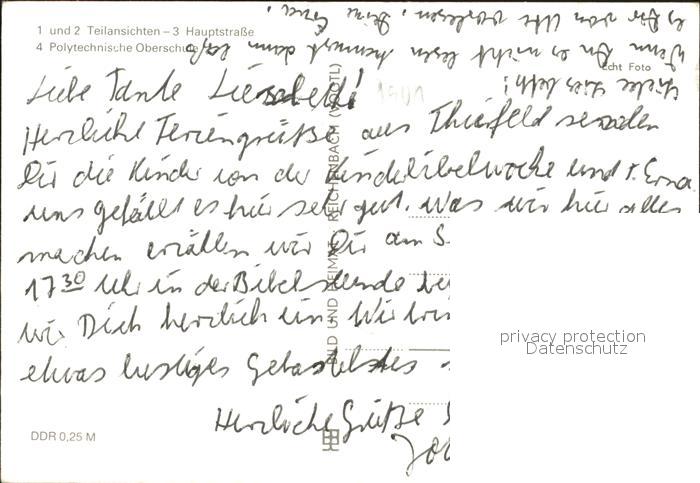 1 und 2 Teilansichten – 3 Hauptstraße
4 Polytechnische Oberschule
Echt Foto
Liebe Liesbeth!
Wenn Du es nicht lesen kannst dann laß
es Dir von Ute vorlesen. Deine Erna.
Liebe Tante Liesbeth!
Herzliche Feriengrüße aus Thierfeld senden
Dir die Kinder von der Kinderbibelwoche und T. Erna
uns gefällt es hier sehr gut. Was wir hier alles
machen erzällen wir Dir am S
17 30 Uhr in der Bibelstunde
wir Dich herzlich ein. Wir
etwas lustiges Gebasteltes
Herzliche Grüße
BILD UND HEIMAT REICHENBACH (VOGTL)
DDR 0,25 M
privacy protection
Datenschutz